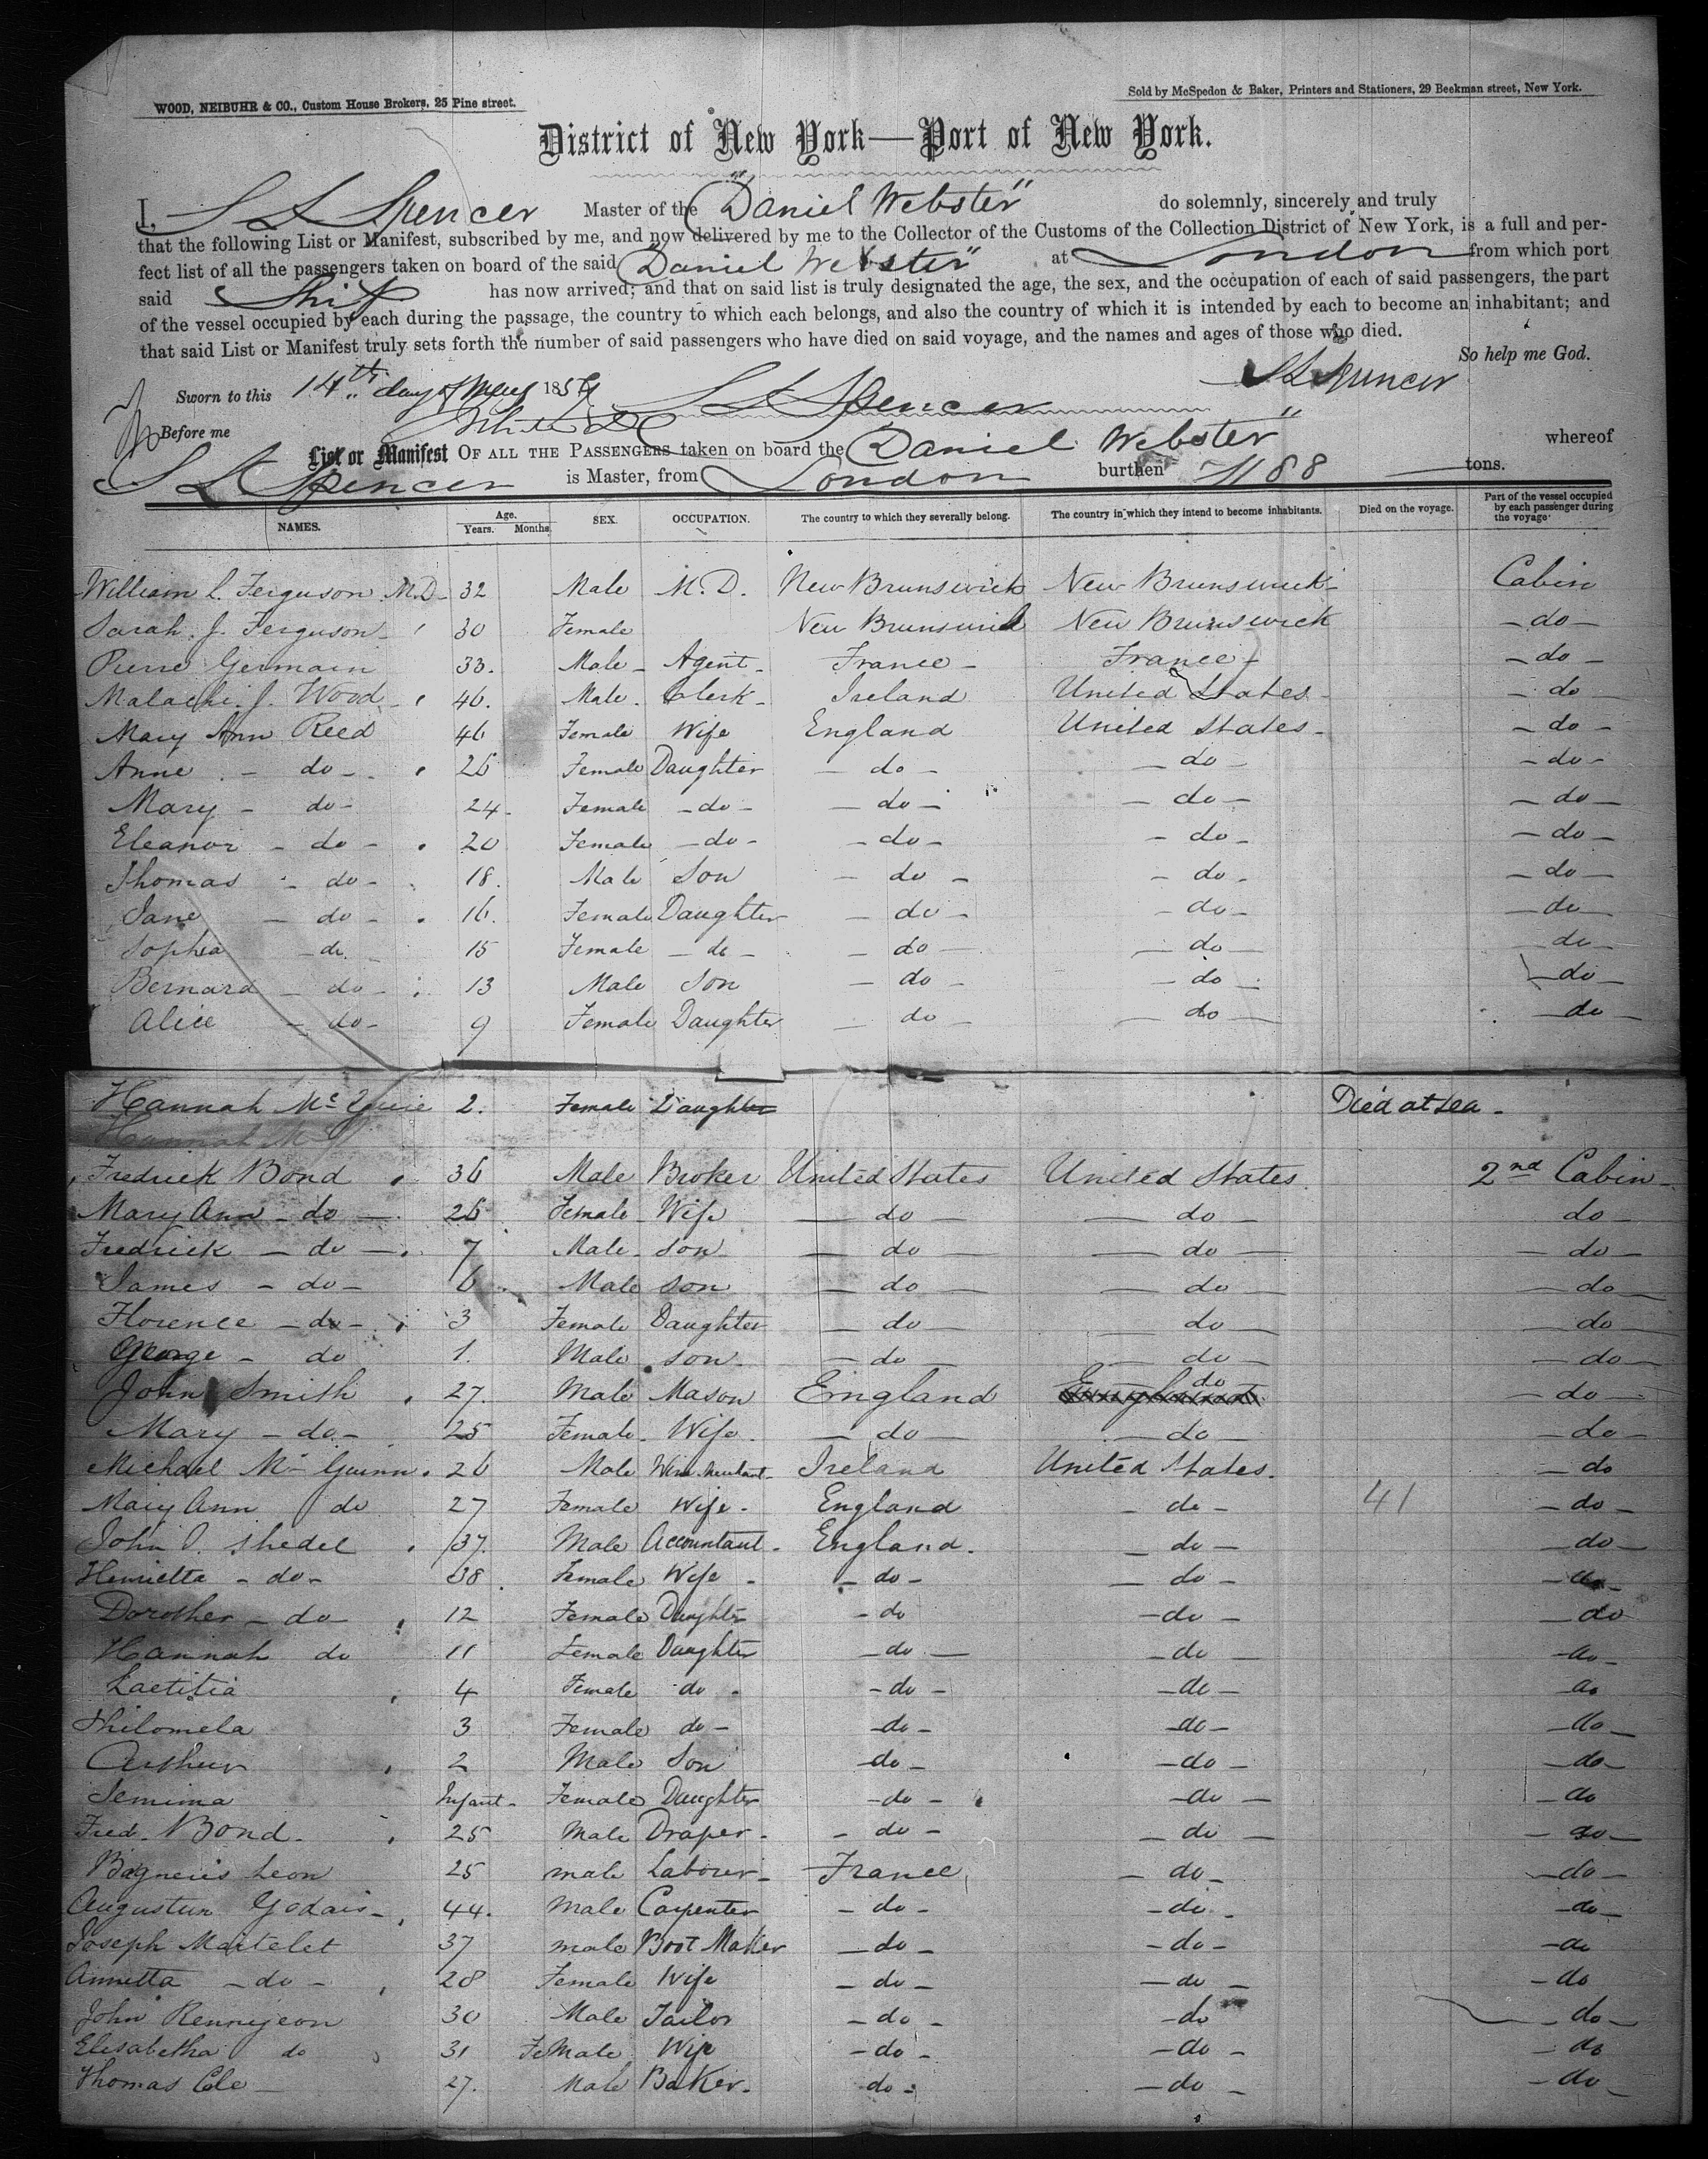 WOOD, NEIBUHR & CO., Custom House Brokers, 25 Pine street.
Sold by McSpedon & Baker, Printers and Stationers, 29 Beekman street, New York.
District of New York—Port of New York.
I, S L Spencer Master of the "Daniel Webster" do solemnly, sincerely and truly
that the following List or Manifest, subscribed by me, and now delivered by me to the Collector of the Customs of the Collection District of New York, is a full and per-
fect list of all the passengers taken on board of the said "Daniel Webster" at London from which port
said Ship has now arrived; and that on said list is truly designated the age, the sex, and the occupation of each of said passengers, the part
of the vessel occupied by each during the passage, the country to which each belongs, and also the country of which it is intended by each to become an inhabitant; and
that said List or Manifest truly sets forth the number of said passengers who have died on said voyage, and the names and ages of those who died.
So help me God.
Sworn to this 14th day of May 185 S L Spencer S L Spencer
Before me
List or Manifest OF ALL THE PASSENGERS taken on board the "Daniel Webster" whereof
S L Spencer is Master, from London burthen 1188 tons.
NAMES. Age. Years. Months. SEX. OCCUPATION. The country to which they severally belong. The country in which they intend to become inhabitants. Died on the voyage. Part of the vessel occupied by each passenger during the voyage
William L. Ferguson M.D. 32 Male M.D. New Brunswick New Brunswick Cabin
Sarah J. Ferguson 30 Female New Brunswick New Brunswick - do -
Pierre Germain 33. Male - Agent - France - France - - do -
Malachi J. Wood 40. Male - Clerk - Ireland United States - - do -
Mary Ann Reed 46 Female Wife England United States - - do -
Anne - do - 26 Female Daughter - do - - do - - do -
Mary - do - 24 - Female - do - - do - - do - - do -
Eleanor - do - 20 Female - do - - do - - do - - do -
Thomas - do - 18. Male Son - do - - do - - do -
Jane - do - 16. Female Daughter - do - - do - - do -
Sophia - do - 15 Female - do - - do - - do - - do -
Bernard - do - 13 Male Son - do - - do - - do -
Alice - do - 9 Female Daughter - do - - do - - do -
Hannah 2. Female Daughter Died at sea -
Hannah Mc
Fredrick Bond 36 Male Broker United States United States 2nd Cabin -
Mary Ann - do - 26 Female - Wife - do - - do - do -
Fredrick - do - 7 Male - Son - do - - do - - do -
James - do - 6 Male Son - do - - do - - do -
Florence - do - 3 Female Daughter - do - - do - - do -
George - do 1. Male Son - - do - - do - - do -
John Smith 27. Male Mason England England do - do -
Mary - do - 25 Female - Wife - do - - do - - do -
Michael Mc Guinn 26 Male Wine Merchant - Ireland United States. - do
Mary Ann do 27 Female Wife - England - do - 41 - do -
John O. Shedel 37. Male Accountant - England. - do - - do -
Henrietta - do - 38 Female Wife - - do - - do - - do -
Dorother - do - 12 Female Daughter - do - do - - do
Hannah do 11 Female Daughter - do - - do - - do -
Laetitia 4 Female do - - do - - do - do
Philomela 3 Female do - - do - - do - - do -
Arthur 2 Male Son - do - - do - - do -
Jemima Infant - Female Daughter - do - - do - - do
Fred. Bond - 25 Male Draper - - do - - do - - do -
Leon 25 male Labourer - France - do - - do -
Augustus Godais - 44. Male Carpenter - do - - do - - do -
Joseph Martelet 37 male Boot Maker - do - - do - - do
Annetta - do - 28 Female Wife - do - - do - - do
John 30 Male Tailor - do - - do - do -
Elisabetha do 31 FeMale Wife - do - - do - - do
Thomas Cole - 27. Male Baker - - do - - do - - do -